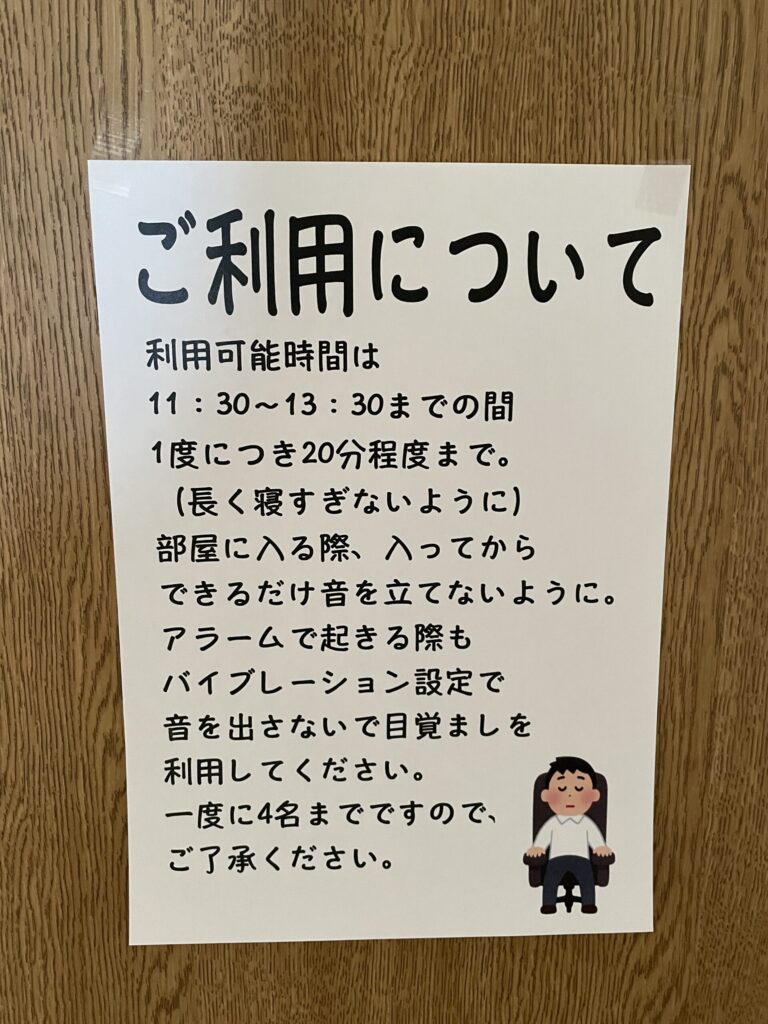 ご利用について
利用可能時間は
11：30～13：30までの間
1度につき20分程度まで。
（長く寝すぎないように）
部屋に入る際、入ってから
できるだけ音を立てないように。
アラームで起きる際も
バイブレーション設定で
音を出さないで目覚ましを
利用してください。
一度に4名までですので、
ご了承ください。